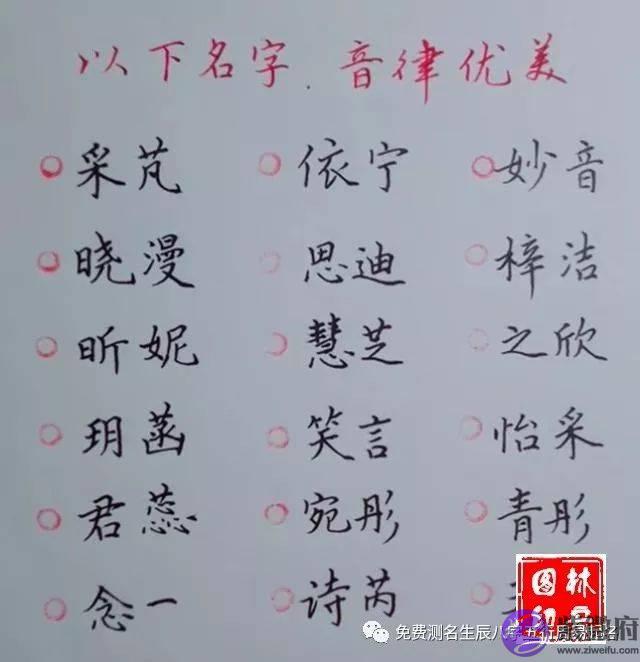 以下名字.音律优美
采芃 依宁 妙音
晓漫 思迪 梓洁
昕妮 慧芝 之欣
玥菡 笑言 怡采
君蕊 宛彤 青彤
念一 诗芮
林
图
印
免费测名生辰八
紫微府
www.ziweifu.com